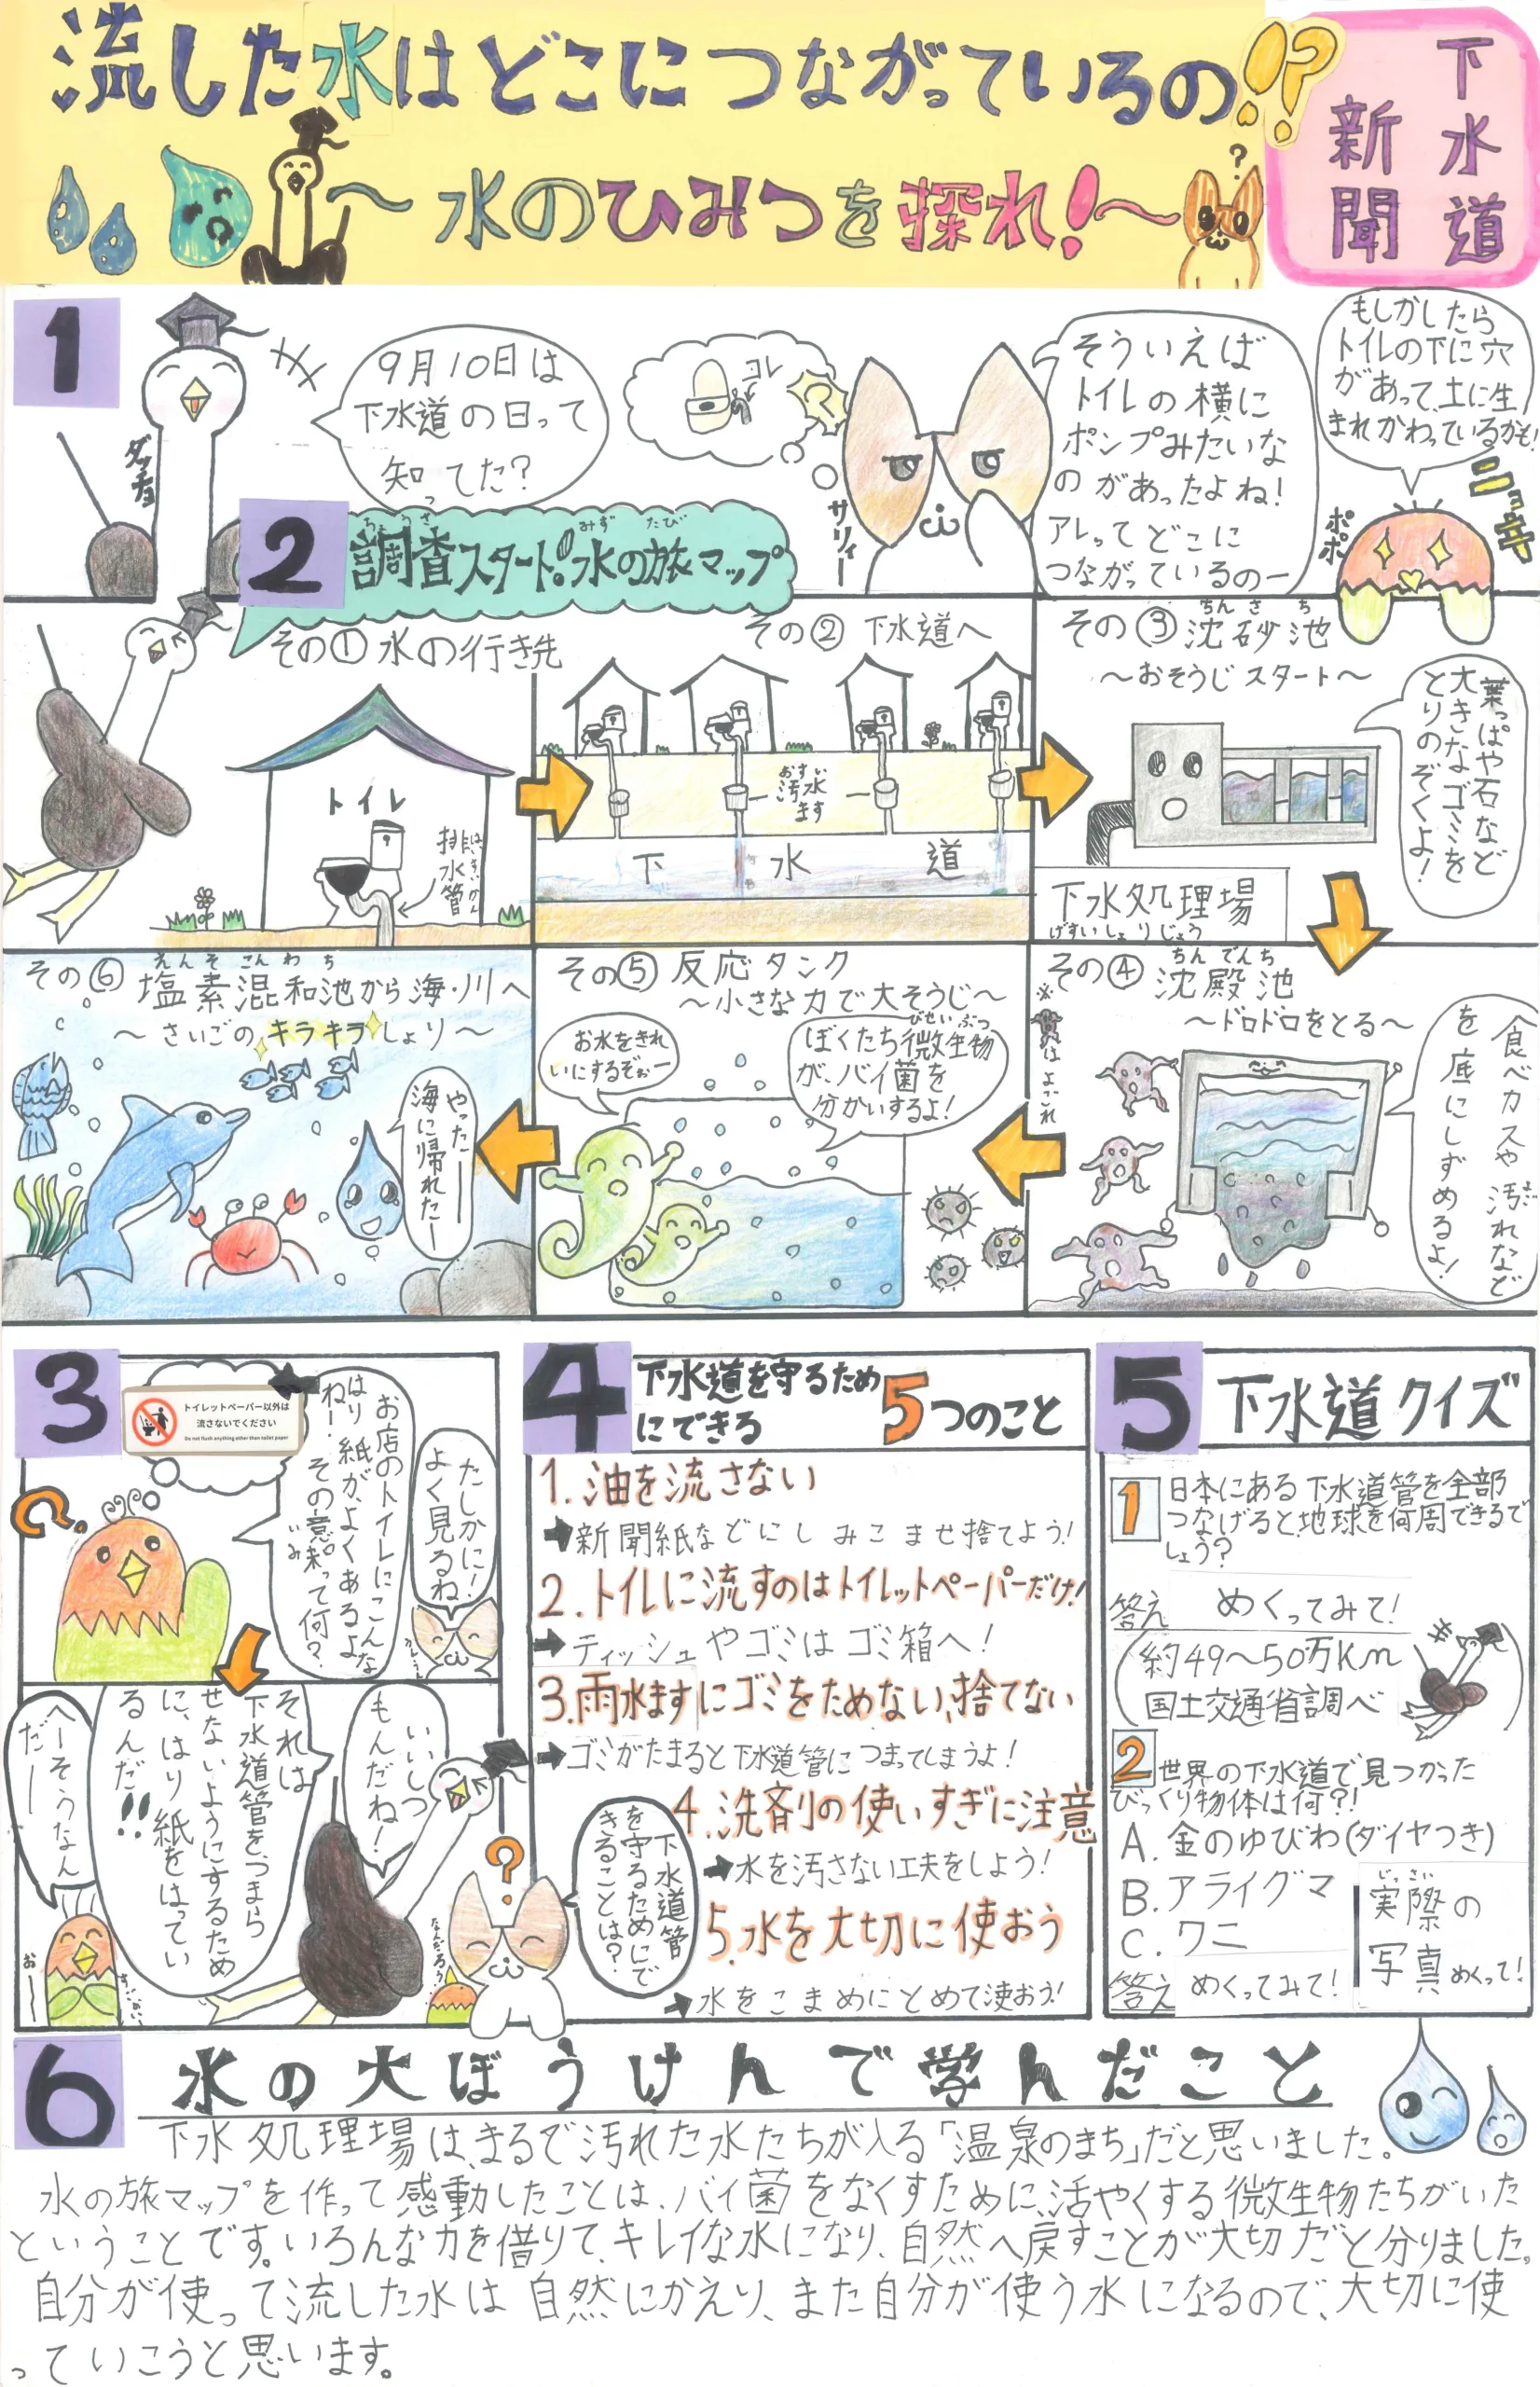 流した水はどこにつながっているの!?
～水のひみつを探れ!～
下水道
新聞
1
ダッチョ
9月10日は
下水道の日って
知ってた?
コレ
?
サリィー
そういえば
トイレの横に
ポンプみたいな
のがあったよね!
アレってどこに
つながっているのー
もしかしたら
トイレの下に穴
があって、土に生
まれかわっているかも!
ポポ
2
調査スタート!水の旅マップ
ちょうさ
みず
たび
その①水の行き先
トイレ
排水管
はいすいかん
その②下水道へ
汚水
おすい
ます
下水道
その③沈砂池
ちんさち
～おそうじスタート～
葉っぱや石など
大きなゴミを
とりのぞくよ!
下水処理場
げすいしょりじょう
その④沈殿池
ちんでんち
～ドロドロをとる～
食べカスや汚れなど
を底にしずめるよ!
よご
※ はよごれ
その⑤反応タンク
～小さな力で大そうじ～
お水をきれ
いにするぞぉー
ぼくたち微生物
びせいぶつ
が、バイ菌を
分かいするよ!
その⑥塩素混和池から海・川へ
えんそこんわち
～さいごのキラキラしょり～
やったー
海に帰れたー
3
トイレットペーパー以外は
流さないでください
Do not flush anything other than toilet paper
?
お店のトイレにこんな
はり紙が、よくあるよな
ねー!その意味って何?
いみ
たしかに!
よく見るね
いいしつ
もんだね!
それは
下水道管をつまら
せないようにするため
に、はり紙をはってい
るんだ!!
へーそうなん
だー
おー
なんだろう?
?
下水道管
を守るためにで
きることは?
4
下水道を守るため
にできる
5つのこと
1.油を流さない
➡新聞紙などにしみこませ捨てよう!
2.トイレに流すのはトイレットペーパーだけ!
➡ティッシュやゴミはゴミ箱へ!
3.雨水ますにゴミをためない、捨てない
➡ゴミがたまると下水道管につまってしまうよ!
4.洗剤の使いすぎに注意
➡水を汚さない工夫をしよう!
5.水を大切に使おう
➡水をこまめにとめて使おう!
5
下水道クイズ
1 日本にある下水道管を全部
つなげると、地球を何周できるで
しょう?
答え めくってみて!
(約49～50万km
国土交通省調べ)
2 世界の下水道で見つかった
びっくり物体は何?!
A.金のゆびわ(ダイヤつき)
B.アライグマ
C.ワニ
答え めくってみて!
じっさい
実際の
写真めくって!
6
水の大ぼうけんで学んだこと
下水処理場は、まるで汚れた水たちが入る「温泉のまち」だと思いました。
水の旅マップを作って感動したことは、バイ菌をなくすために、活やくする微生物たちがいた
ということです。いろんな力を借りて、キレイな水になり、自然へ戻すことが大切だと分りました。
自分が使って流した水は自然にかえり、また自分が使う水になるので、大切に使
っていこうと思います。